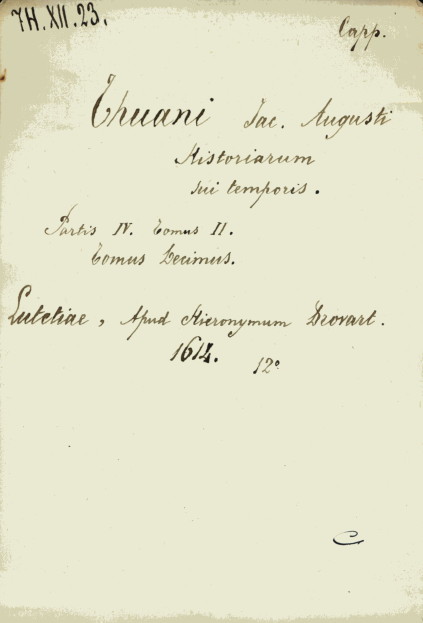 7H.XII.23.
Capp.
Thuani Jac. Augusti
Historiarum
sui temporis.
Partis IV. Tomus II.
Tomus Decimus.
Lutetiae, Apud Hieronymum Drovart.
1614. 12°
C